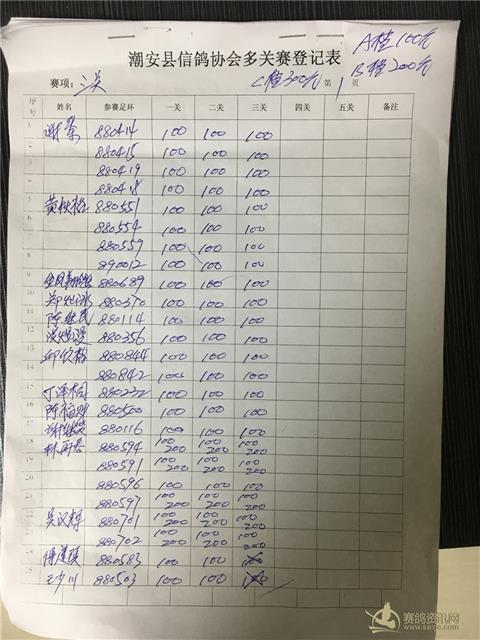 潮安县信鸽协会多关赛登记表
A档100元
B档200元
C档300元
赛项: 三关 第 1 页
序号 姓名 参赛足环 一关 二关 三关 四关 五关 备注
1 谢 880414 100 100 100
2 880415 100 100 100
3 880419 100 100 100
4 880418 100 100 100
5 黄 880551 100 100 100
6 880554 100 100 100
7 880559 100 100 100
8 890012 100 100 100
9 880689 100 100 100
10 郑 880370 100 100 100
11 陈 民 880114 100 100 100
12 880356 100 100 100
13 邱 880844 100 100 100
14 880842 100 100 100
15 丁泽桐 880232 100 100 100
16 陈 880500 100 100 100
17 谢 880116 100 100 100
18 林 880594 100 200 100 200 100 200
19 880591 100 200 100 200 100 200
20 880596 100 100 100
21 880597 100 200 100 200 100 200
22 吴汉 880701 100 200 100 200 100 200
23 880702 100 200 100 200 100 200
24 傅 880583 100 100
25 王少川 880503 100 100
赛鸽资讯网
www.saige.com